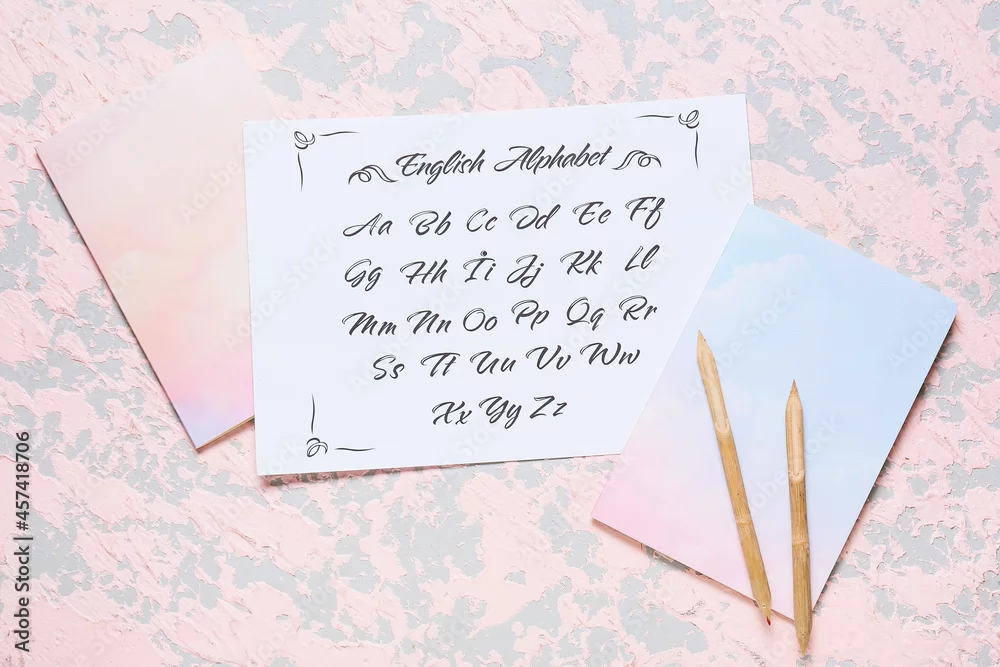 English Alphabet
Aa Bb Cc Dd Ee Ff
Gg Hh İi Jj Kk Ll
Mm Nn Oo Pp Qq Rr
Ss Tt Uu Vv Ww
Xx Yy Zz
Adobe Stock | #457418706